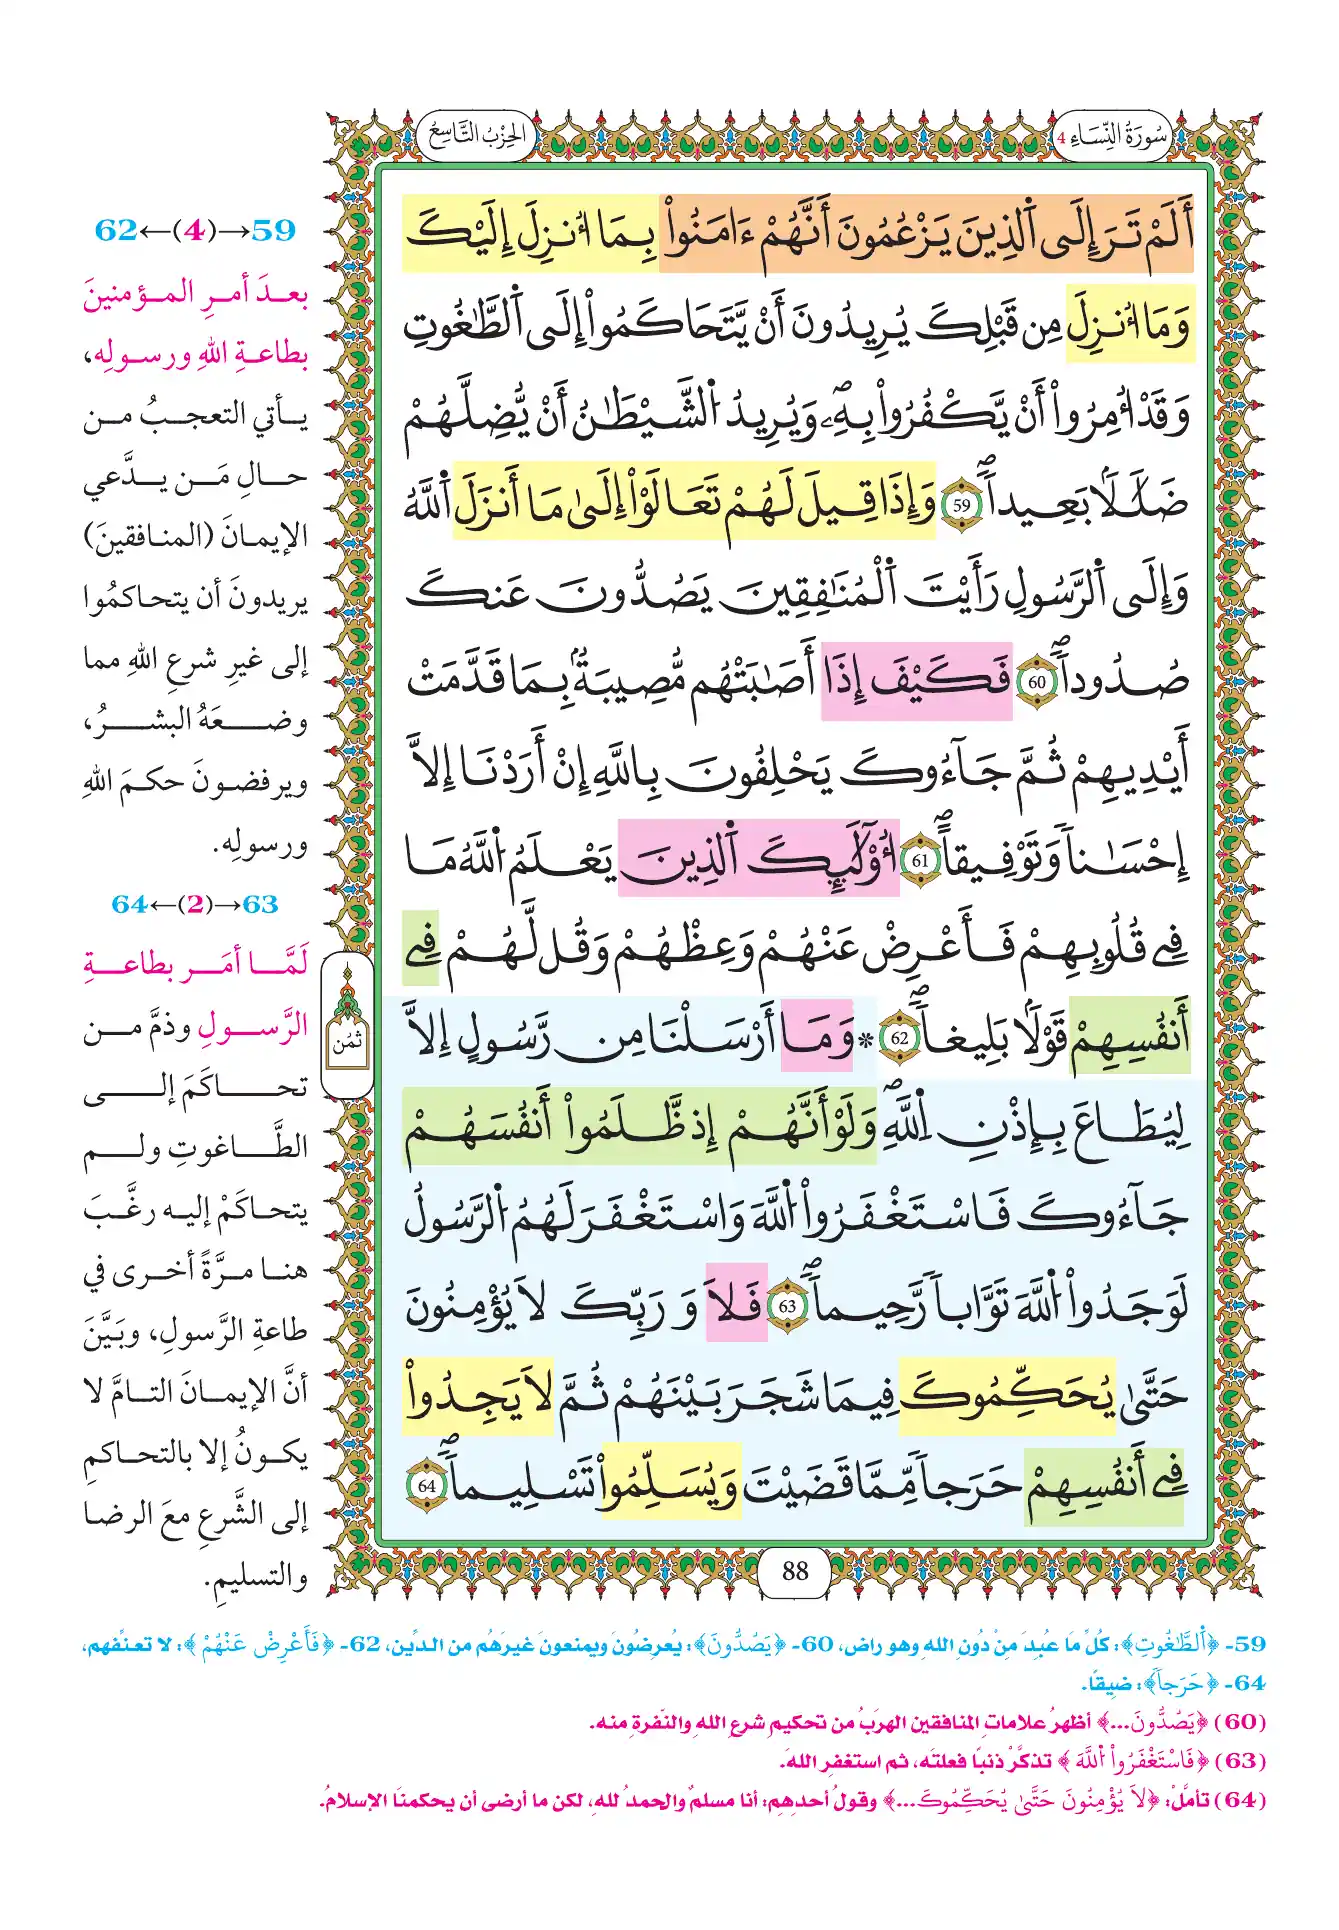 سُورَةُ النِّسَاءِ 4
الحِزْبُ التَّاسِعُ
أَلَمْ تَرَ إِلَى اَ۬لذِينَ يَزْعُمُونَ أَنَّهُمْ ءَامَنُواْ بِمَا أُنزِلَ إِلَيْكَ
وَمَا أُنزِلَ مِن قَبْلِكَ يُرِيدُونَ أَنْ يَّتَحَاكَمُواْ إِلَى اَ۬لطَّٰغُوتِ
وَقَدُ ا۟مِرُواْ أَنْ يَّكْفُرُواْ بِهِۦۖ وَيُرِيدُ اُ۬لشَّيْطَٰنُ أَنْ يُّضِلَّهُمْ
ضَلَٰلاَۢ بَعِيداٗۖ 59 وَإِذَا قِيلَ لَهُمْ تَعَالَوِاْ اِلَىٰ مَا أَنزَلَ اَ۬للَّهُ
وَإِلَى اَ۬لرَّسُولِ رَأَيْتَ اَ۬لْمُنَٰفِقِينَ يَصُدُّونَ عَنكَ
صُدُوداٗۖ 60 فَكَيْفَ إِذَا أَصَٰبَتْهُم مُّصِيبَةُۢ بِمَا قَدَّمَتْ
أَيْدِيهِمْ ثُمَّ جَآءُوكَ يَحْلِفُونَ بِاللَّهِ إِنْ أَرَدْنَا إِلاَّ
إِحْسَٰناٗ وَتَوْفِيقاًۖ 61 ا۟وْلَٰٓئِكَ اَ۬لذِينَ يَعْلَمُ اُ۬للَّهُ مَا
فِے قُلُوبِهِمْ فَأَعْرِضْ عَنْهُمْ وَعِظْهُمْ وَقُل لَّهُمْ فِے
أَنفُسِهِمْ قَوْلَاۢ بَلِيغاٗۖ 62 * وَمَا أَرْسَلْنَا مِن رَّسُولٍ إِلاَّ
لِيُطَاعَ بِإِذْنِ اِ۬للَّهِۖ وَلَوْ أَنَّهُمْ إِذ ظَّلَمُواْ أَنفُسَهُمْ
جَآءُوكَ فَاسْتَغْفَرُواْ اُ۬للَّهَ وَاسْتَغْفَرَ لَهُمُ اُ۬لرَّسُولُ
لَوَجَدُواْ اُ۬للَّهَ تَوَّاباٗ رَّحِيماٗۖ 63 فَلاَ وَرَبِّكَ لاَ يُؤْمِنُونَ
حَتَّىٰ يُحَكِّمُوكَ فِيمَا شَجَرَ بَيْنَهُمْ ثُمَّ لاَ يَجِدُواْ
فِے أَنفُسِهِمْ حَرَجاٗ مِّمَّا قَضَيْتَ وَيُسَلِّمُواْ تَسْلِيماٗۖ 64
ثُمُن
88
62←(4)→59
بعدَ أمرِ المؤمنينَ
بطاعةِ اللهِ ورسولِه،
يأتي التعجبُ من
حالِ مَن يدَّعي
الإيمانَ (المنافقينَ)
يريدونَ أن يتحاكمُوا
إلى غيرِ شرعِ اللهِ مما
وضعَهُ البشرُ،
ويرفضونَ حكمَ اللهِ
ورسولِه.
64←(2)→63
لَمَّا أمَر بطاعةِ
الرَّسولِ وذمَّ من
تحاكَمَ إلى
الطَّاغوتِ ولم
يتحاكَمْ إليه رغَّبَ
هنا مرَّةً أخرى في
طاعةِ الرَّسولِ، وبَيَّنَ
أنَّ الإيمانَ التامَّ لا
يكونُ إلا بالتحاكمِ
إلى الشَّرعِ معَ الرضا
والتسليمِ.
59- ﴿اَ۬لطَّٰغُوتِ﴾: كُلُّ مَا عُبِدَ مِنْ دُونِ اللهِ وهو راضٍ، 60- ﴿يَصُدُّونَ﴾: يُعرِضُونَ ويمنعونَ غيرَهُم من الدِّينِ، 62- ﴿فَأَعْرِضْ عَنْهُمْ﴾: لا تعنِّفهم،
64- ﴿حَرَجاٗ﴾: ضيقًا.
(60) ﴿يَصُدُّونَ...﴾ أظهرُ علاماتِ المنافقين الهربُ من تحكيم شرعِ اللهِ والنّفرةِ منه.
(63) ﴿فَاسْتَغْفَرُواْ اُ۬للَّهَ﴾ تذكَّرْ ذنبًا فعلتَه، ثم استغفرِ اللهَ.
(64) تأمَّلْ: ﴿لاَ يُؤْمِنُونَ حَتَّىٰ يُحَكِّمُوكَ...﴾ وقولُ أحدِهِم: أنا مسلمٌ والحمدُ للهِ، لكن ما أرضى أن يحكمنَا الإسلامُ.